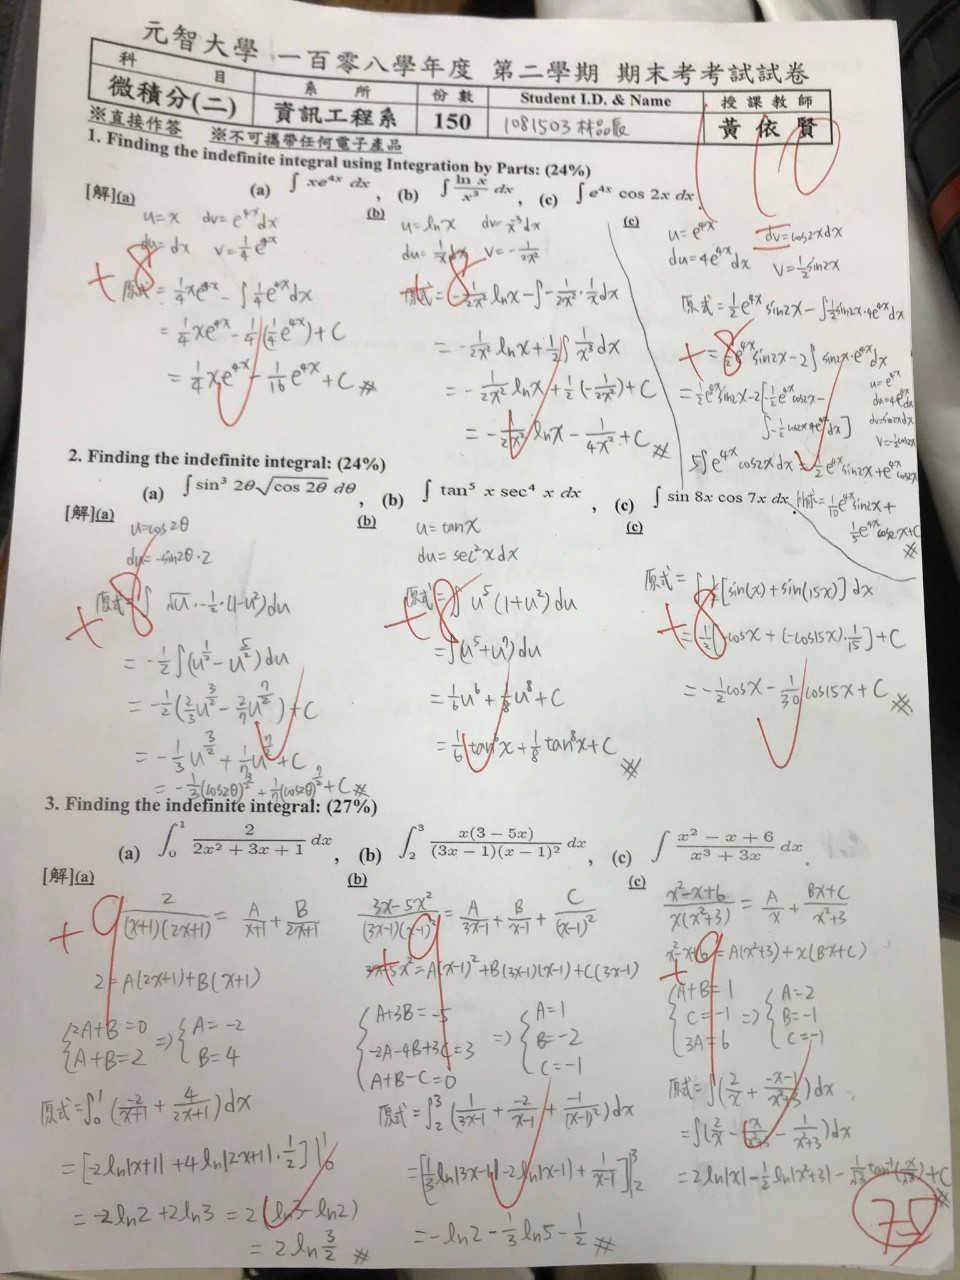 元智大學 一百零八學年度 第二學期 期末考考試試卷
科 目 系 所 份 數 Student I.D. & Name 授 課 教 師
微積分(二) 資訊工程系 150 1081503 黃 依 賢
※直接作答 ※不可攜帶任何電子產品
110
1. Finding the indefinite integral using Integration by Parts: (24%)
(a) ∫ xe^{4x} dx , (b) ∫ \frac{ln x}{x^3} dx , (c) ∫ e^{4x} cos 2x dx .
[解](a)
u=x dv=e^{4x}dx
du=dx v=\frac{1}{4}e^{4x}
+8
原式=\frac{1}{4}xe^{4x}-∫\frac{1}{4}e^{4x}dx
=\frac{1}{4}xe^{4x}-\frac{1}{4}(\frac{1}{4}e^{4x})+C
=\frac{1}{4}xe^{4x}-\frac{1}{16}e^{4x}+C #
(b)
u=lnx dv=x^{-3}dx
du=\frac{1}{x}dx v=-\frac{1}{2x^2}
+8
原式=-\frac{1}{2x^2}lnx-∫-\frac{1}{2x^2}·\frac{1}{x}dx
=-\frac{1}{2x^2}lnx+\frac{1}{2}∫\frac{1}{x^3}dx
=-\frac{1}{2x^2}lnx+\frac{1}{2}(-\frac{1}{2x^2})+C
=-\frac{1}{2x^2}lnx-\frac{1}{4x^2}+C #
(c)
u=e^{4x} dv=cos2xdx
du=4e^{4x}dx v=\frac{1}{2}sin2x
原式=\frac{1}{2}e^{4x}sin2x-∫\frac{1}{2}sin2x·4e^{4x}dx
+8
=\frac{1}{2}e^{4x}sin2x-2∫sin2x·e^{4x}dx
u=e^{4x}
du=4e^{4x}dx
dv=sin2xdx
v=-\frac{1}{2}cos2x
=\frac{1}{2}e^{4x}sin2x-2[-\frac{1}{2}e^{4x}cos2x-
∫-\frac{1}{2}cos2x4e^{4x}dx]
5∫e^{4x}cos2xdx=\frac{1}{2}e^{4x}sin2x+e^{4x}cos2x
原式=\frac{1}{10}e^{4x}sin2x+
\frac{1}{5}e^{4x}cos2x+C
#
2. Finding the indefinite integral: (24%)
(a) ∫ sin^3 2θ√{cos 2θ} dθ , (b) ∫ tan^5 x sec^4 x dx , (c) ∫ sin 8x cos 7x dx .
[解](a)
u=cos2θ
du=-sin2θ·2
+8
原式=∫√u·-\frac{1}{2}·(1-u^2)du
=-\frac{1}{2}∫(u^{\frac{1}{2}}-u^{\frac{5}{2}})du
=-\frac{1}{2}(\frac{2}{3}u^{\frac{3}{2}}-\frac{2}{7}u^{\frac{7}{2}})+C
=-\frac{1}{3}u^{\frac{3}{2}}+\frac{1}{7}u^{\frac{7}{2}}+C
=-\frac{1}{3}(cos2θ)^{\frac{3}{2}}+\frac{1}{7}(cos2θ)^{\frac{7}{2}}+C #
(b)
u=tanx
du=sec^2xdx
+8
原式=∫u^5(1+u^2)du
=∫(u^5+u^7)du
=\frac{1}{6}u^6+\frac{1}{8}u^8+C
=\frac{1}{6}tan^6x+\frac{1}{8}tan^8x+C #
(c)
原式=∫\frac{1}{2}[sin(x)+sin(15x)]dx
+8
=\frac{1}{2}[-cosx+(-cos15x)·\frac{1}{15}]+C
=-\frac{1}{2}cosx-\frac{1}{30}cos15x+C #
3. Finding the indefinite integral: (27%)
(a) ∫_0^1 \frac{2}{2x^2+3x+1} dx , (b) ∫_2^3 \frac{x(3-5x)}{(3x-1)(x-1)^2} dx , (c) ∫ \frac{x^2-x+6}{x^3+3x} dx .
[解](a)
+9
\frac{2}{(x+1)(2x+1)}=\frac{A}{x+1}+\frac{B}{2x+1}
2=A(2x+1)+B(x+1)
{2A+B=0 => {A=-2
{A+B=2 {B=4
原式=∫_0^1(\frac{-2}{x+1}+\frac{4}{2x+1})dx
=[-2ln|x+1|+4ln|2x+1|·\frac{1}{2}]|_0^1
=-2ln2+2ln3=2(ln3-ln2)
=2ln\frac{3}{2} #
(b)
\frac{3x-5x^2}{(3x-1)(x-1)^2}=\frac{A}{3x-1}+\frac{B}{x-1}+\frac{C}{(x-1)^2}
+9
3x-5x^2=A(x-1)^2+B(3x-1)(x-1)+C(3x-1)
{A+3B=-5 {A=1
{-2A-4B+3C=3 => {B=-2
{A+B-C=0 {C=-1
原式=∫_2^3(\frac{1}{3x-1}+\frac{-2}{x-1}+\frac{-1}{(x-1)^2})dx
=[\frac{1}{3}ln|3x-1|-2ln|x-1|+\frac{1}{x-1}]|_2^3
=-ln2-\frac{1}{3}ln5-\frac{1}{2} #
(c)
\frac{x^2-x+6}{x(x^2+3)}=\frac{A}{x}+\frac{Bx+C}{x^2+3}
x^2-x+6=A(x^2+3)+x(Bx+C)
+9
{A+B=1 {A=2
{C=-1 => {B=-1
{3A=6 {C=-1
原式=∫(\frac{2}{x}+\frac{-x-1}{x^2+3})dx
=∫(\frac{2}{x}-\frac{x}{x^2+3}-\frac{1}{x^2+3})dx
=2ln|x|-\frac{1}{2}ln|x^2+3|-\frac{1}{√3}tan^{-1}(\frac{x}{√3})+C
#
75